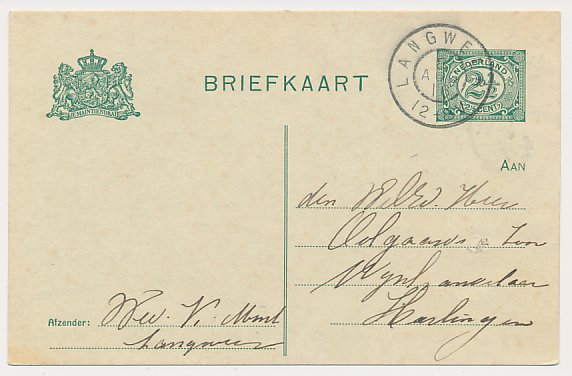 LANGWE
NEDERLAND
2½
CENT
JE MAINTIENDRAI
BRIEFKAART
AAN
den WelEd. Heer
Oolgaards & Zoon
Wijnhandelaar
Harlingen
Afzender: Wed. V. Mint
Langweer